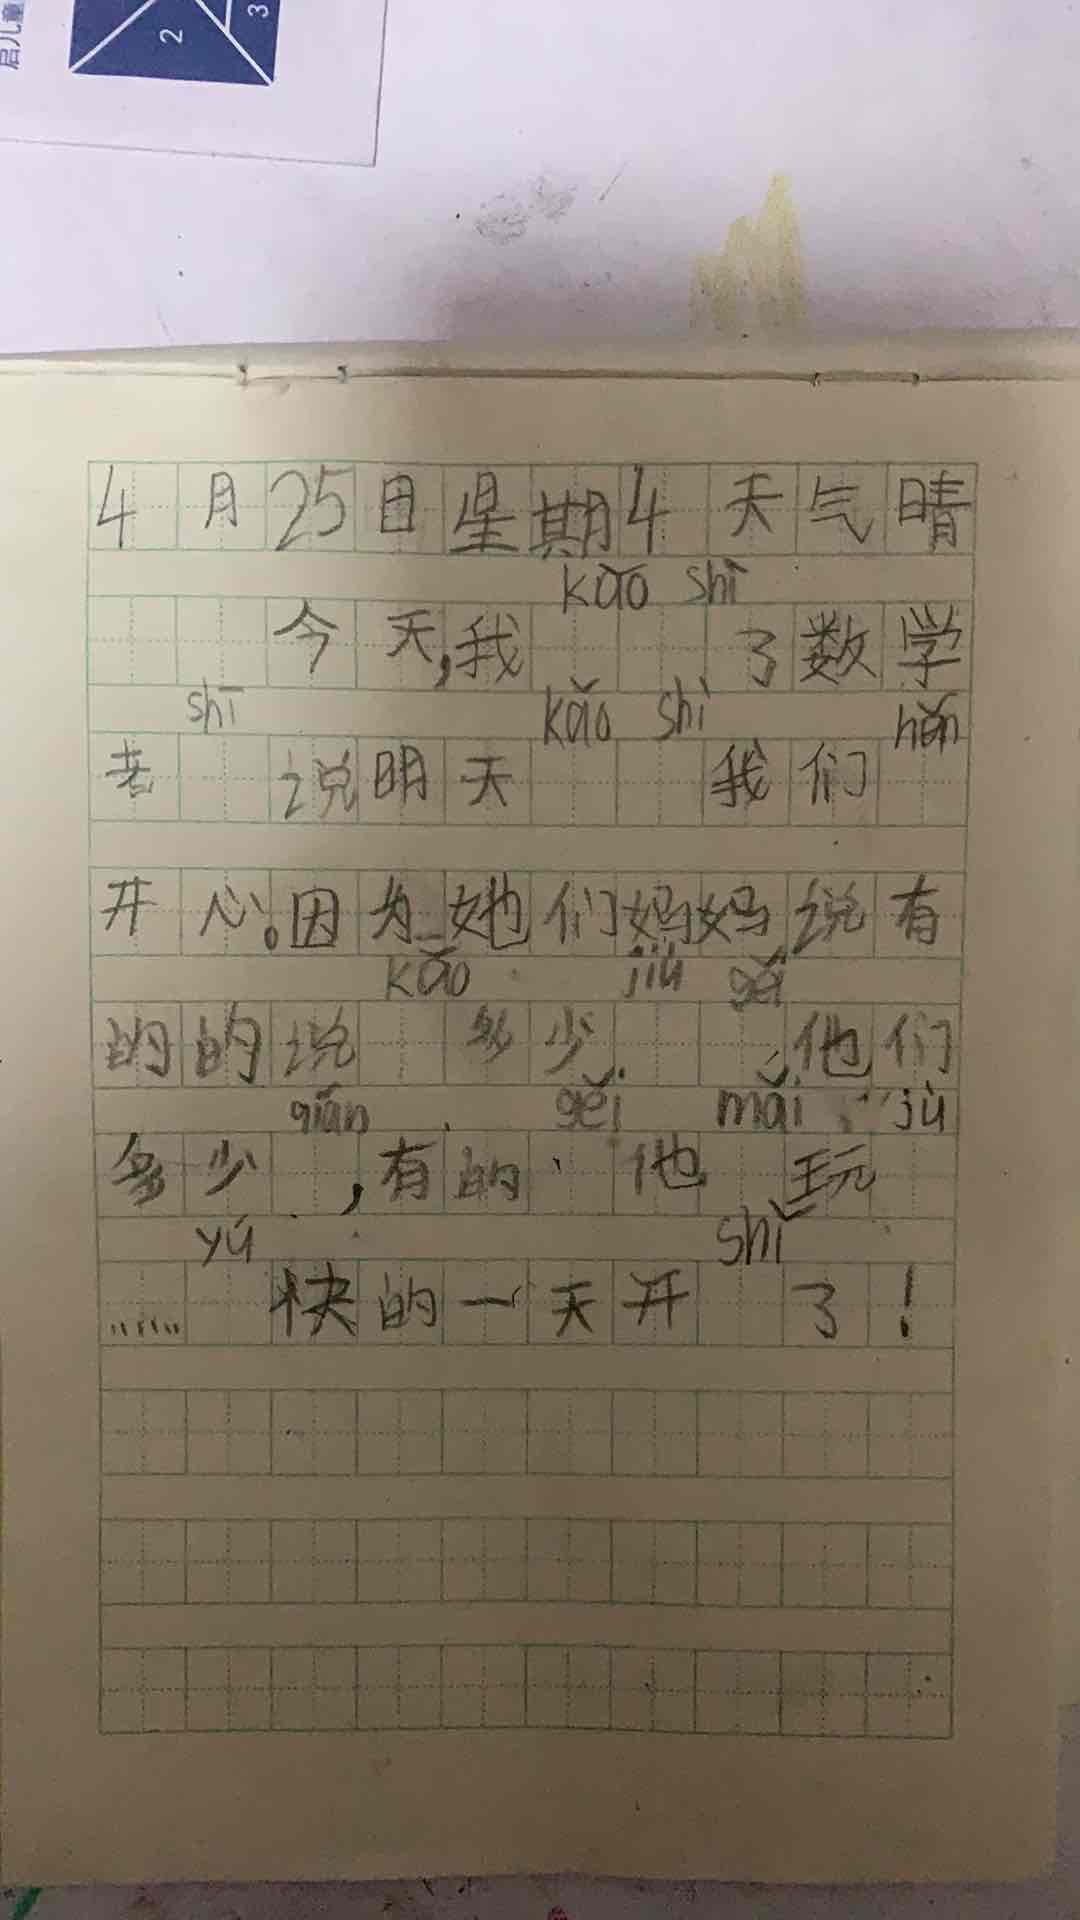 启儿童
2
3
4月25日星期4 天气晴
kǎo shì
今天,我 了数学
shī kǎo shì hěn
老 说明天 我们
开心。因为她们妈妈说有
kǎo jiù gěi
的的说 多少 , 他们
qián gěi mǎi jù
多少 ,有的、 他 玩
yú shǐ
…… 快的一天开 了!